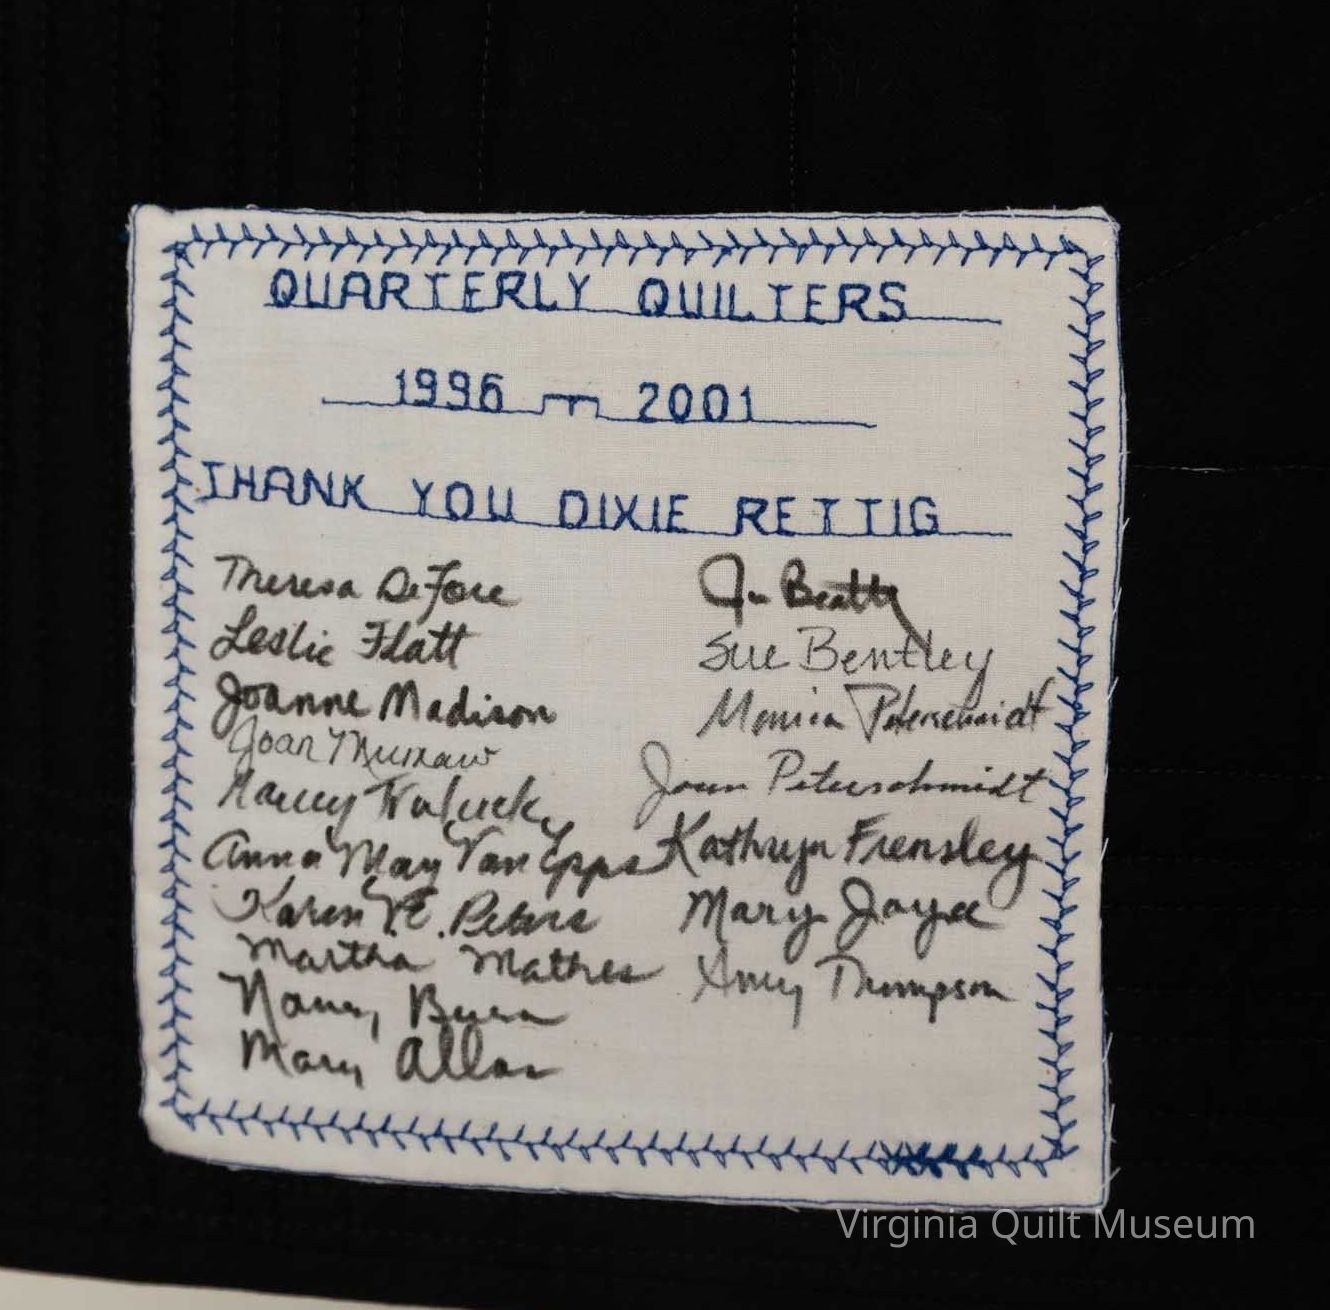 QUARTERLY QUILTERS
1996 - 2001
THANK YOU DIXIE RETTIG
Theresa DeFore
Leslie Flatt
Joanne Madison
Joan Mumaw
Nancy
Anna May Van Epps
Karen E. Peters
Martha Mathes
Nancy
Mary Allan
Beatty
Sue Bentley
Monica Peterschmidt
Joan Peterschmidt
Kathryn Frensley
Mary Joyce
Amy Thompson
Virginia Quilt Museum